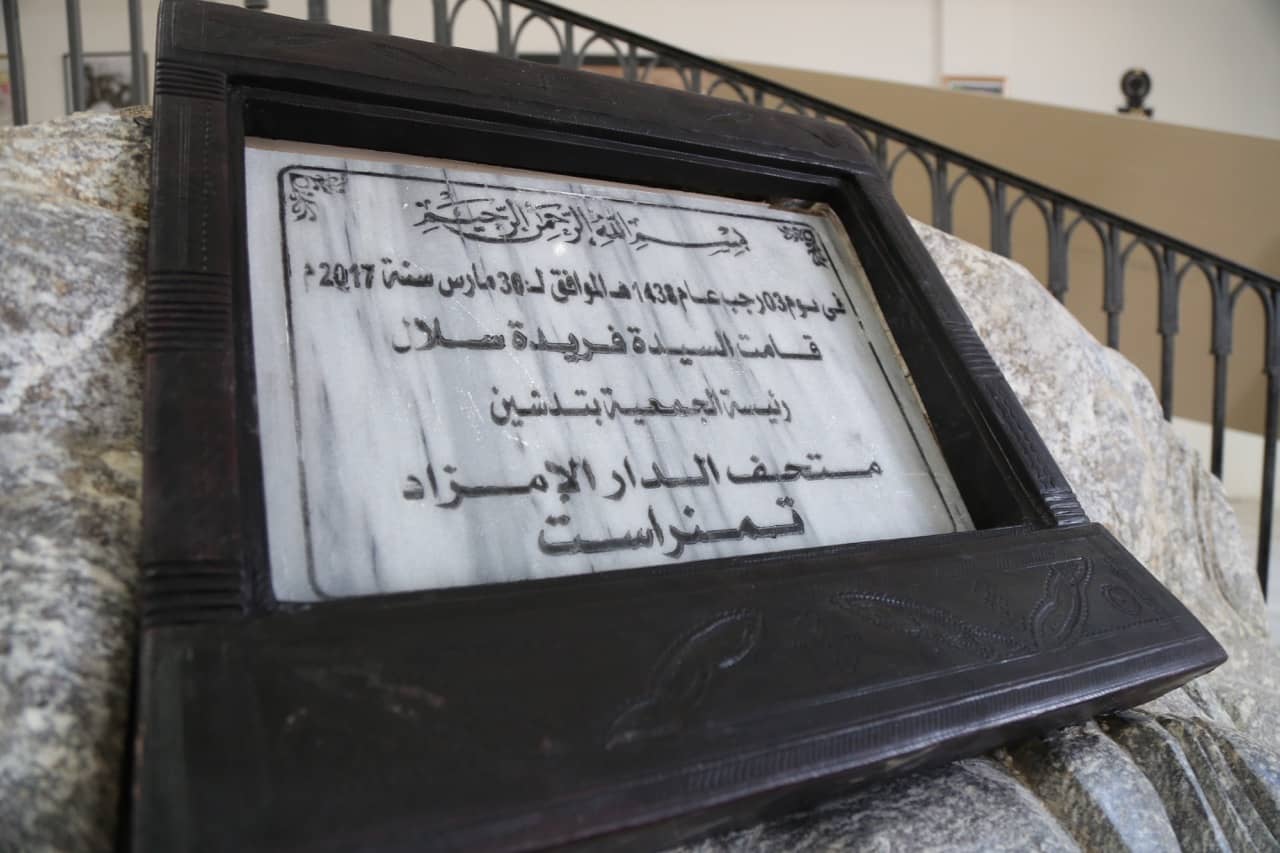 بسم الله الرحمن الرحيم
في يوم 03 رجب عام 1438 هـ الموافق لـ: 30 مارس سنة 2017 م
قامت السيدة فريدة سلال
رئيسة الجمعية بتدشين
متحف الدار الإمزاد
تمنراست